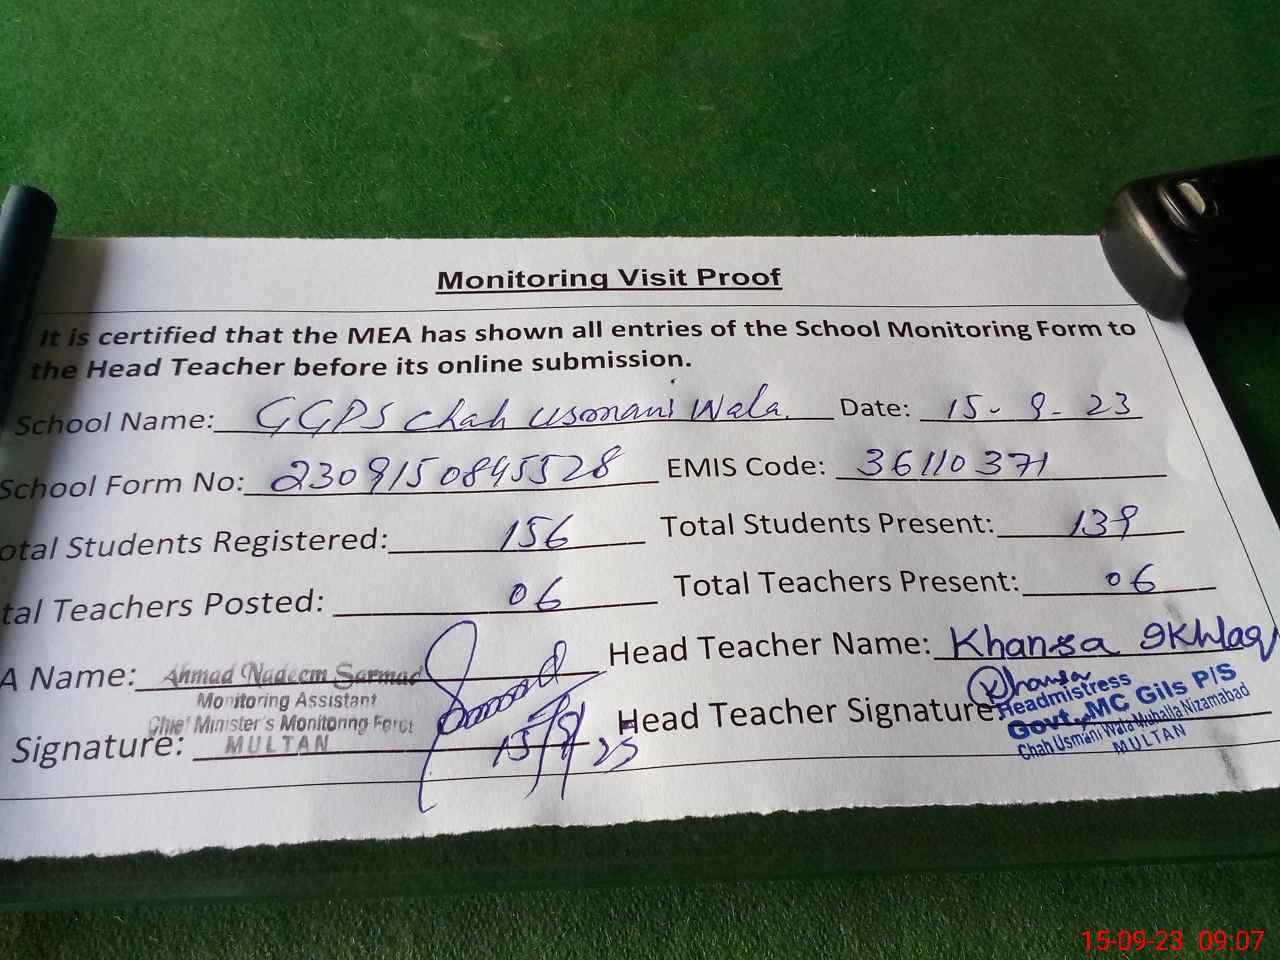 Monitoring Visit Proof
It is certified that the MEA has shown all entries of the School Monitoring Form to
the Head Teacher before its online submission.
School Name: GGPS Chah Usmani Wala. Date: 15-9-23
School Form No: 2309150845528 EMIS Code: 36110371
otal Students Registered: 156 Total Students Present: 139
tal Teachers Posted: 06 Total Teachers Present: 06
A Name: Ahmad Nadeem Sarmad Head Teacher Name: Khansa Ikhlaq
Monitoring Assistant
Chief Minister's Monitoring Force
MULTAN
Signature: 15/9/23 Head Teacher Signature: Khansa
Headmistress
Govt. MC Gils P/S
Chah Usmani Wala Muhalla Nizamabad
MULTAN
15-09-23 09:07